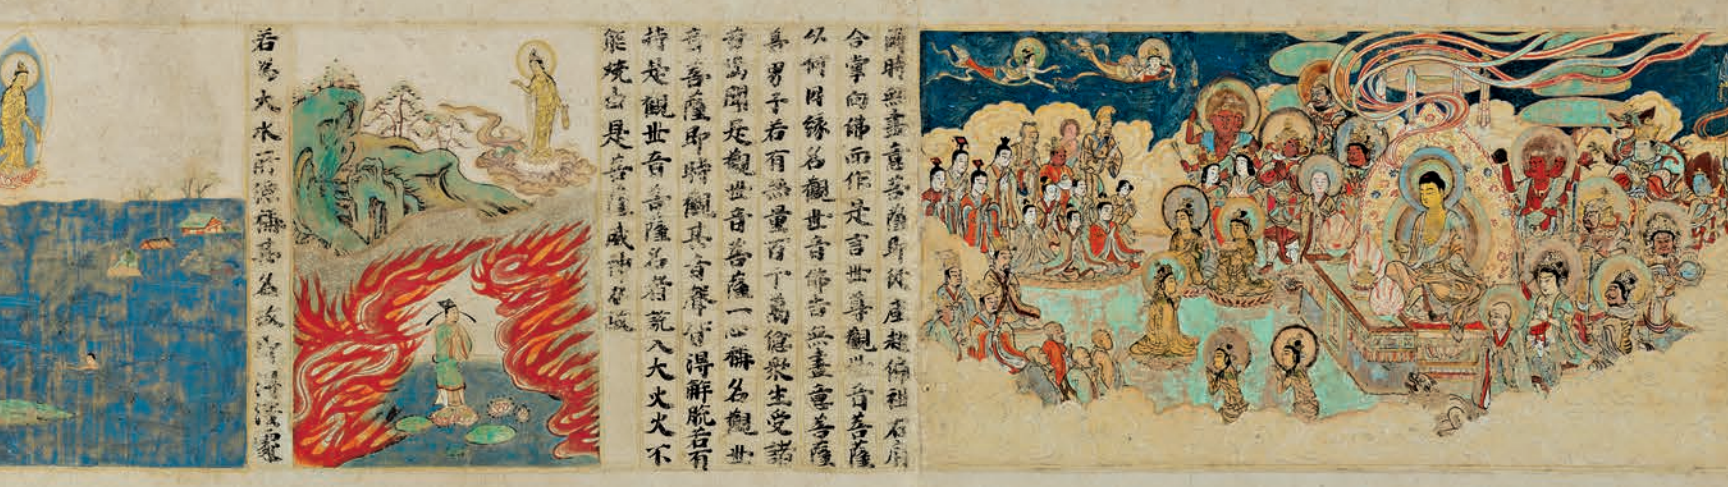 爾時無盡意菩薩即從座起偏袒右肩
合掌向佛而作是言世尊觀世音菩薩
以何因緣名觀世音佛告無盡意菩薩
善男子若有無量百千萬億衆生受諸
苦惱聞是觀世音菩薩一心稱名觀世
音菩薩即時觀其音聲皆得解脫若有
持是觀世音菩薩名者設入大火火不
能燒由是菩薩威神力故
若為大水所漂稱其名故即得淺處